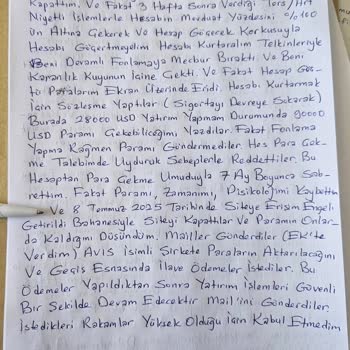 Kapattım. Ve Fakat 3 Hafta Sonra Verdiği Ters/Art
Niyetli İşlemlerle Hesabın Mevduat Yüzdesini %100
ün Altına Çekerek Ve Hesap Göçecek Korkusuyla
Hesabı Göçertmeyelim Hesabı Kurtaralım Telkinleriyle
Beni Devamlı Fonlamaya Mecbur Bıraktı Ve Beni
Karanlık Kuyunun İçine Çekti. Ve Fakat Hesap Göç-
tü Paralarım Ekran Üzerinde Eridi. Hesabı Kurtarmak
İçin Sözleşme Yaptılar (Sigortayı Devreye Sokarak)
Burada 28000 USD Yatırım Yapmam Durumunda 90000
USD Paramı Çekebileceğimi Yazdılar. Fakat Fonlama
Yapma Rağmen Paramı Göndermediler Hes Para Çek-
me Talebimde Uyduruk Sebeplerle Reddettiler. Bu
Hesaptan Para Çekme Umuduyla 7 Ay Boyunca Sab-
rettim. Fakat Paramı, Zamanımı, Disikolojimi Kaybettim
Ve 8 Temmuz 2025 Tarihinde Siteye Erişim Engeli
Getirildi Bahanesiyle Siteyi Kapattılar Ve Paramın Onlar-
da Kaldığını Düşündüm. Mailler Gönderdiler (EK'te
Verdim) AVIS İsimli Şirkete Paraların Aktarılacağını
Ve Geçiş Esnasında İlave Ödemeler İstediler. Bu
Ödemeler Yapıldıktan Sonra Yatırım İşlemleri Güvenli
Bir Şekilde Devam Edecektir Mail'ini Gönderdiler.
İstedikleri Rakamlar Yüksek Olduğu İçin Kabul Etmedim